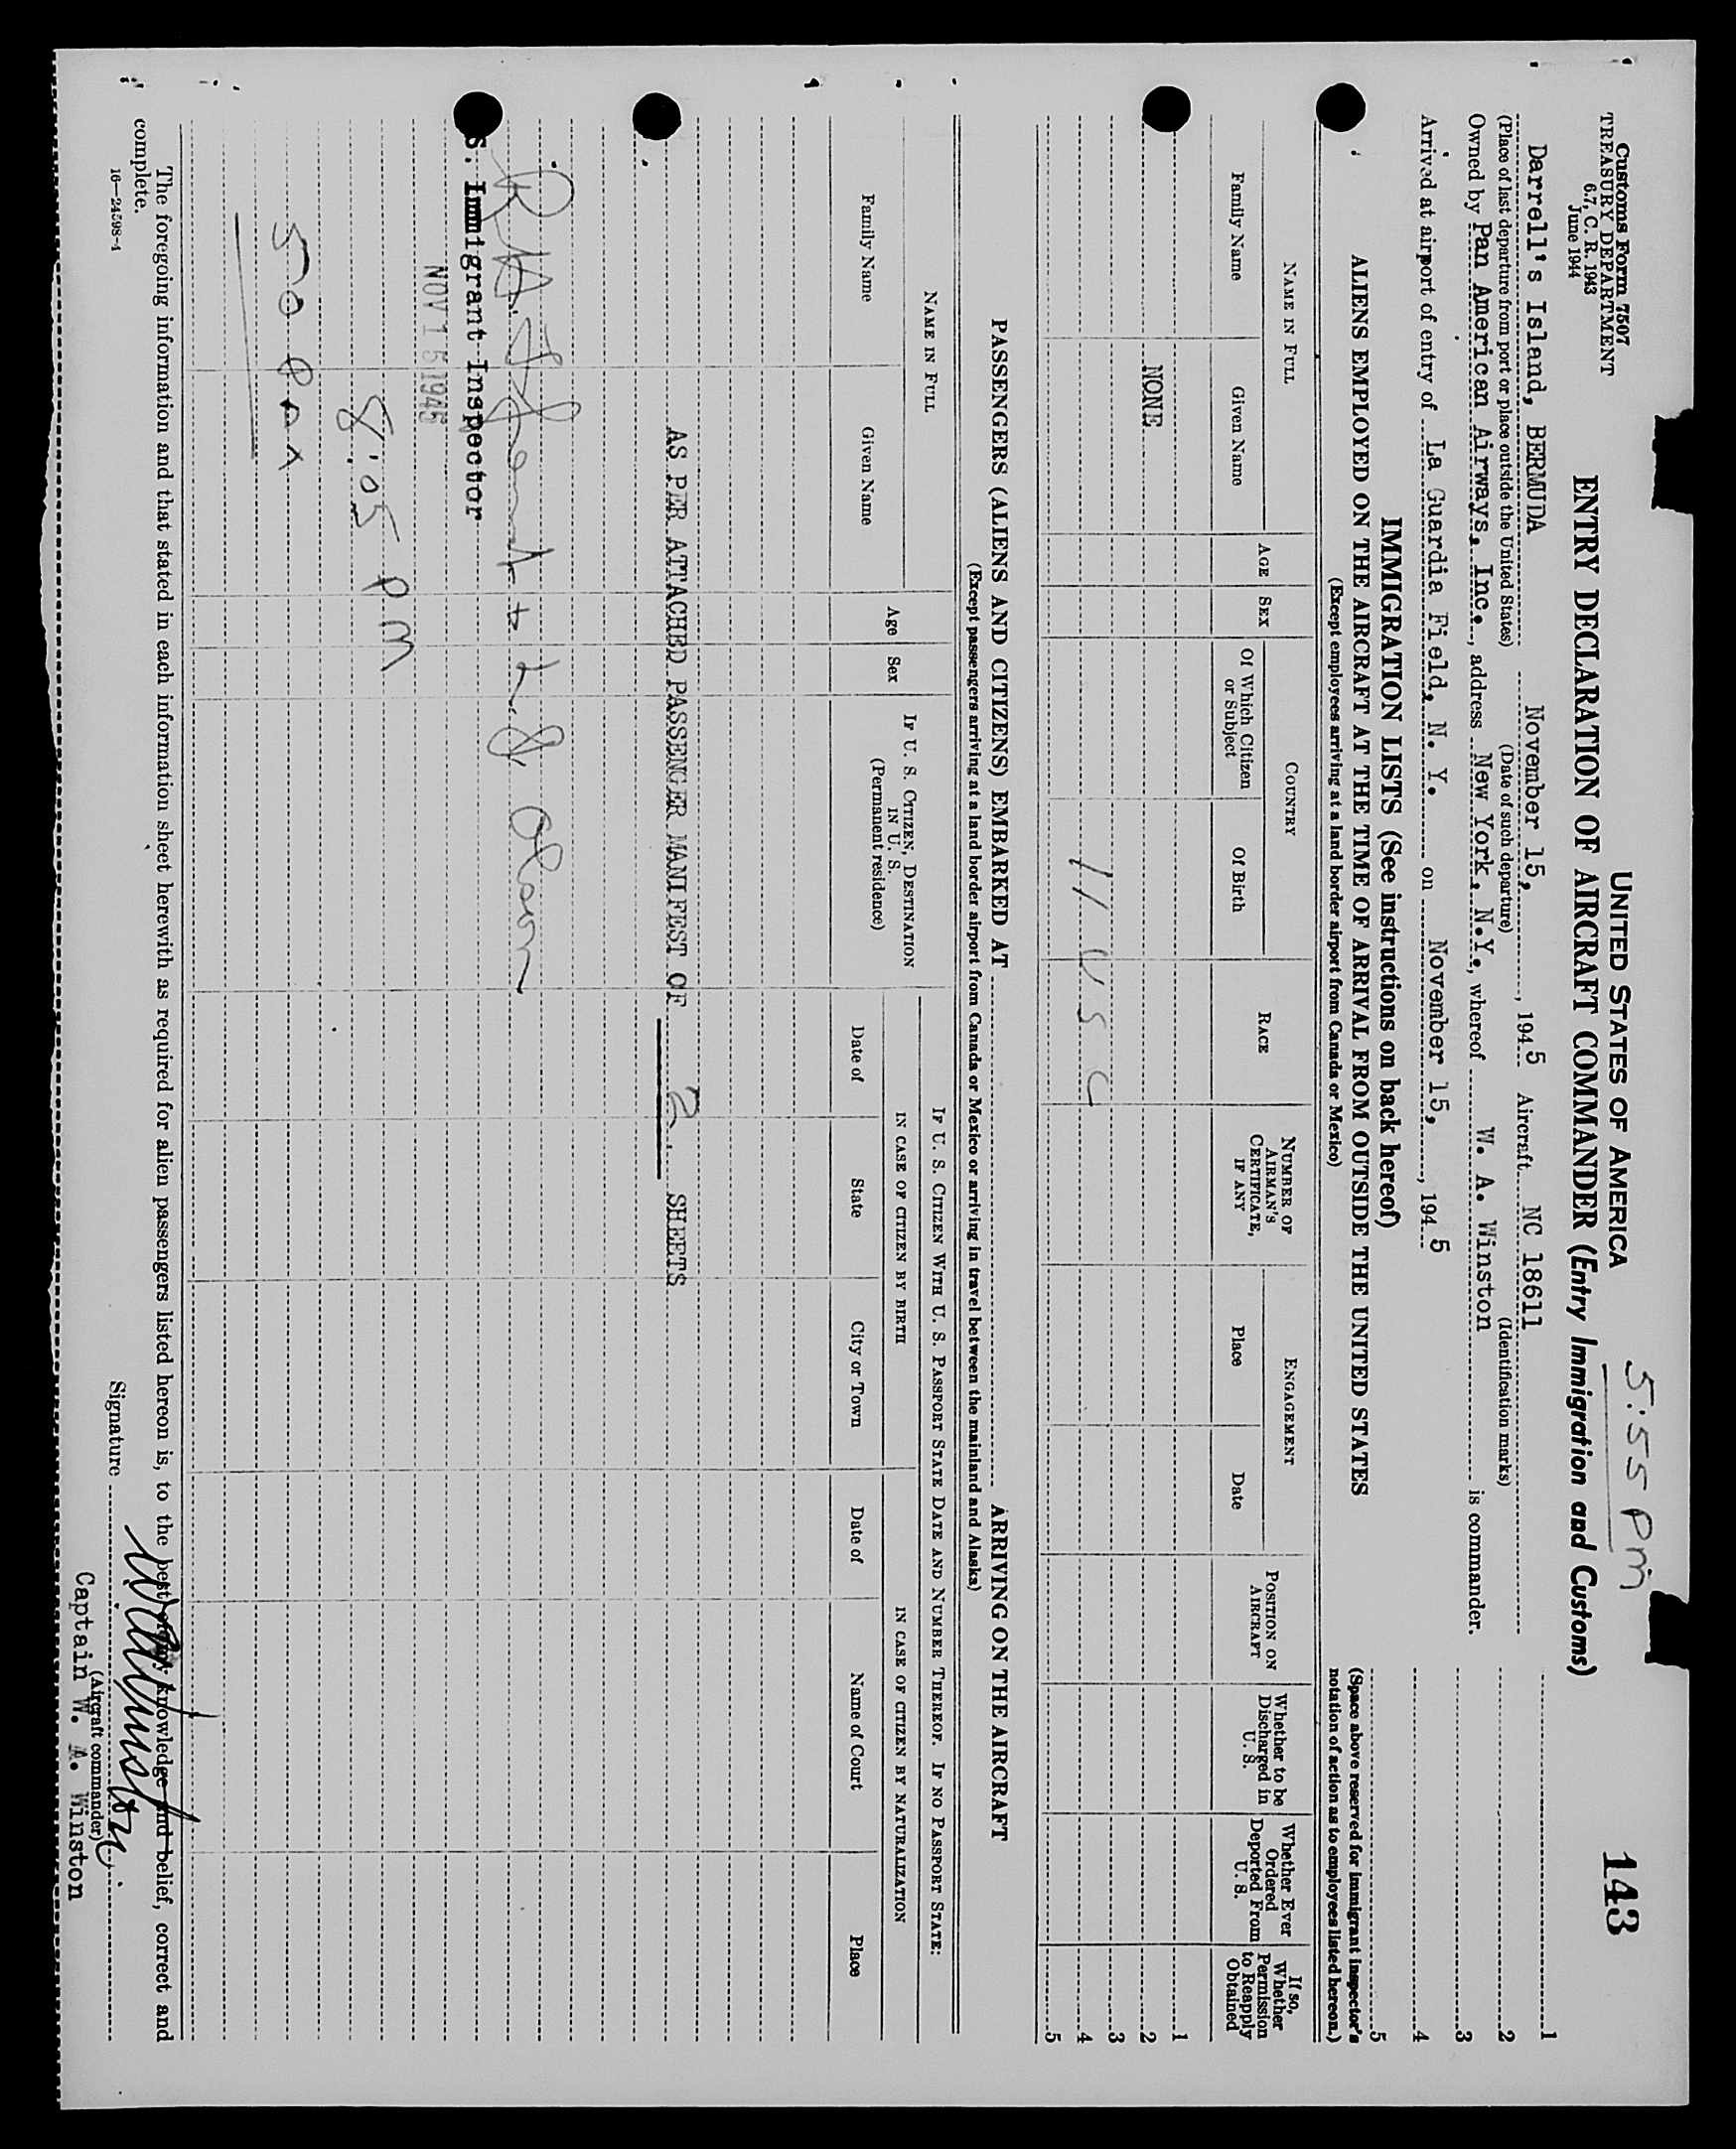 Customs Form 7507
TREASURY DEPARTMENT
6.7, C. R. 1943
June 1944
5:55 PM
143
UNITED STATES OF AMERICA
ENTRY DECLARATION OF AIRCRAFT COMMANDER (Entry Immigration and Customs)
Darrell's Island, BERMUDA November 15, , 1945 Aircraft NC 18611
(Place of last departure from port or place outside the United States) (Date of such departure) (Identification marks)
Owned by Pan American Airways, Inc., address New York, N.Y., whereof W. A. Winston is commander.
Arrived at airport of entry of La Guardia Field, N. Y. on November 15, , 1945
1
2
3
4
5
(Space above reserved for immigrant inspector's notation of action as to employees listed hereon.)
IMMIGRATION LISTS (See instructions on back hereof)
ALIENS EMPLOYED ON THE AIRCRAFT AT THE TIME OF ARRIVAL FROM OUTSIDE THE UNITED STATES
(Except employees arriving at a land border airport from Canada or Mexico)
NAME IN FULL
Family Name
Given Name
AGE
SEX
COUNTRY
Of Which Citizen or Subject
Of Birth
RACE
NUMBER OF AIRMAN'S CERTIFICATE, IF ANY
ENGAGEMENT
Place
Date
POSITION ON AIRCRAFT
Whether to be Discharged in U. S.
Whether Ever Ordered Deported From U. S.
If so, Whether Permission to Reapply Obtained
1
NONE 2
3
11 USC 4
5
PASSENGERS (ALIENS AND CITIZENS) EMBARKED AT ARRIVING ON THE AIRCRAFT
(Except passengers arriving at a land border airport from Canada or Mexico or arriving in travel between the mainland and Alaska)
NAME IN FULL
Family Name
Given Name
Age
Sex
IF U. S. CITIZEN, DESTINATION IN U. S.
(Permanent residence)
IF U. S. CITIZEN WITH U. S. PASSPORT STATE DATE AND NUMBER THEREOF. IF NO PASSPORT STATE:
IN CASE OF CITIZEN BY BIRTH
Date of
State
City or Town
IN CASE OF CITIZEN BY NATURALIZATION
Date of
Name of Court
Place
AS PER ATTACHED PASSENGER MANIFEST OF 2 SHEETS
L. J. Olson
S. Immigrant Inspector
NOV 15 1945
8:05 PM
50 PAX
The foregoing information and that stated in each information sheet herewith as required for alien passengers listed hereon is, to the best of my knowledge and belief, correct and
complete.
16—24598-1
Signature W A Winston
(Aircraft commander)
Captain W. A. Winston